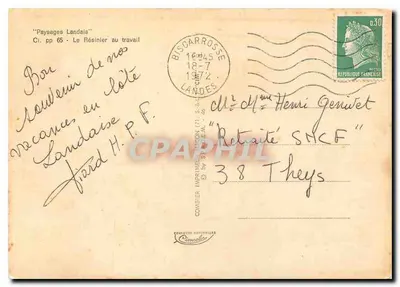 "Paysages Landais"
Cl. pp 65 - Le Résinier au travail
Bon
souvenir de nos
vacances en Côte
Landaise
H. P. F.
BISCARROSSE
18-7
1972
LANDES
0,30
REPUBLIQUE FRANÇAISE
Mr Mme Henri
"Retraité SNCF"
38 Theys
CPAPHIL
COMBIER IMPRIMEUR MACON